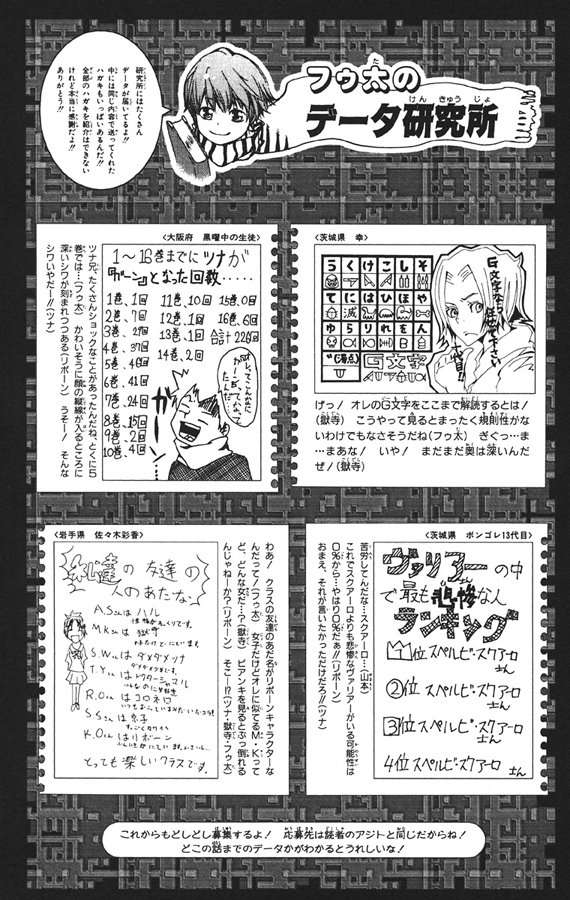 フゥ太の
データ研究所
研究所にはたくさん
データが届いてるよ!!
中には同じ内容で送ってくれた
ハガキもいっぱいあるんだ!!
全部のハガキを紹介はできない
けれど本当に感謝だよ!
ありがとう!!
〈茨城県 幸〉
う く け こ し そ
て に は ひ ほ や
ゆ ら り れ を ん
G文字
げっ! オレのG文字をここまで解読するとは!
(獄寺) こうやって見るとまったく規則性がな
いわけでもなさそうだね(フゥ太) ぎぐっ…ま
…まあな! いや! まだまだ奥は深いんだ
ぜ!(獄寺)
〈大阪府 黒曜中の生徒〉
1～16巻までにツナが
『ガーン』となった回数……
1巻、1回
2巻、7回
3巻、27回
4巻、37回
5巻、46回
6巻、41回
7巻、24回
8巻、15回
9巻、2回
10巻、4回
11巻、10回
12巻、1回
13巻、1回
14巻、2回
15巻、0回
16巻、6回
合計226回
ガーン
ツナ兄、たくさんショックなことがあったんだね。とくに5
巻では…(フゥ太) かわいそうに顔の縦線が入るところに
深いシワが刻まれつつある(リボーン) うそー! そんな
シワいやだー!!(ツナ)
〈茨城県 ボンゴレ13代目〉
ヴァリアーの中
で最も悲惨な人
ランキング
1位 スペルビ・スクアーロさん
2位 スペルビ・スクアーロさん
3位 スペルビ・スクアーロさん
4位 スペルビ・スクアーロさん
苦労してんだな…スクアーロ…(山本)
これでスクアーロよりも悲惨なヴァリアーがいる可能性は
0%から…やはり0%だぁ!!(リボーン)
おまえ、それが言いたかっただけだろ!!(ツナ)
〈岩手県 佐々木彩香〉
私達の友達の
人のあだな
A.Sさんは ハル
M.Kさんは 獄寺
S.Wさんは ダメダメツナ
T.Yさんは ドクターシャマル
R.Oさんは コロネロ
S.Sさんは 京子
K.Oさんは リボーン
とっても楽しいクラスです。
わあ! クラスの友達のあだ名がリボーンキャラクターな
んだって!(フゥ太) 女子だけどオレに似てるM・Kって
ど、どんな女だ…?(獄寺) ビアンキを見るとぶっ倒れる
んじゃねーか?(リボーン) そこー!?(ツナ・獄寺・フゥ太)
これからもどしどし募集するよ! 応募先は読者のアジトと同じだからね!
どこの話までのデータかがわかるとうれしいな!